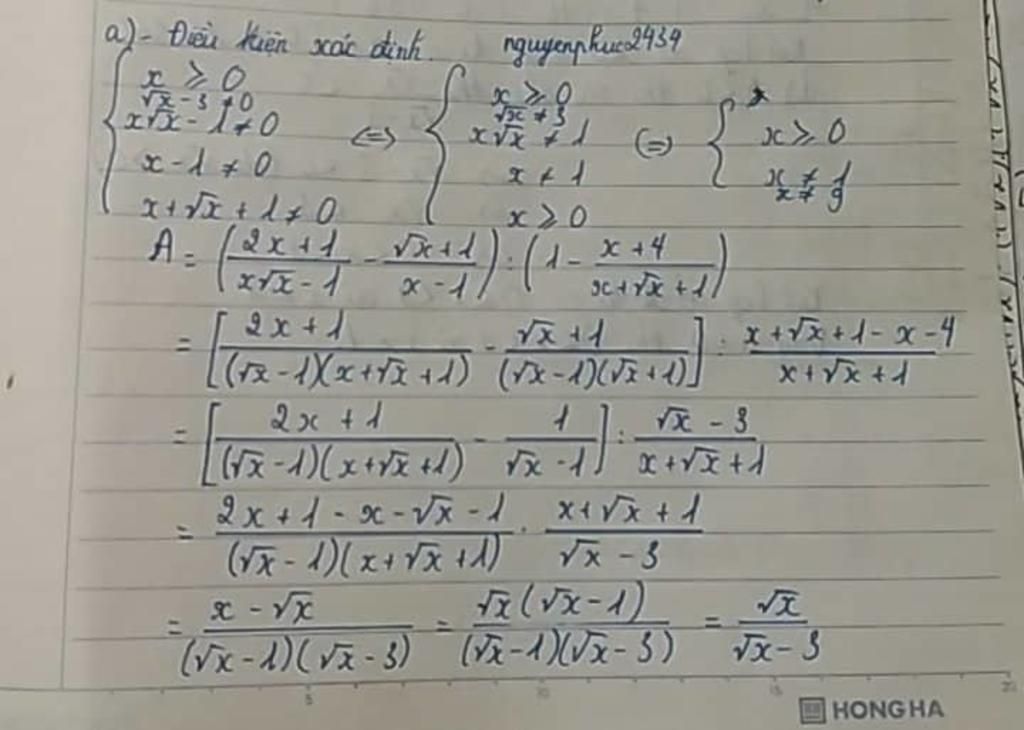 a) - Điều kiện xác định. nguyenphuc2434
{ x ≥ 0 ; √x - 3 ≠ 0 ; x√x - 1 ≠ 0 ; x - 1 ≠ 0 ; x + √x + 1 ≠ 0 (=) { x ≥ 0 ; √x ≠ 3 ; x√x ≠ 1 ; x ≠ 1 ; x ≥ 0 (=) { x ≥ 0 ; x ≠ 1 ; x ≠ 9
A = ( (2x + 1)/(x√x - 1) - (√x + 1)/(x - 1) ) : ( 1 - (x + 4)/(x + √x + 1) )
= [ (2x + 1)/((√x - 1)(x + √x + 1)) - (√x + 1)/((√x - 1)(√x + 1)) ] : (x + √x + 1 - x - 4)/(x + √x + 1)
= [ (2x + 1)/((√x - 1)(x + √x + 1)) - 1/(√x - 1) ] : (√x - 3)/(x + √x + 1)
= (2x + 1 - x - √x - 1)/((√x - 1)(x + √x + 1)) . (x + √x + 1)/(√x - 3)
= (x - √x)/((√x - 1)(√x - 3)) = (√x(√x - 1))/((√x - 1)(√x - 3)) = √x/(√x - 3)
5 10 15 20
HONG HA